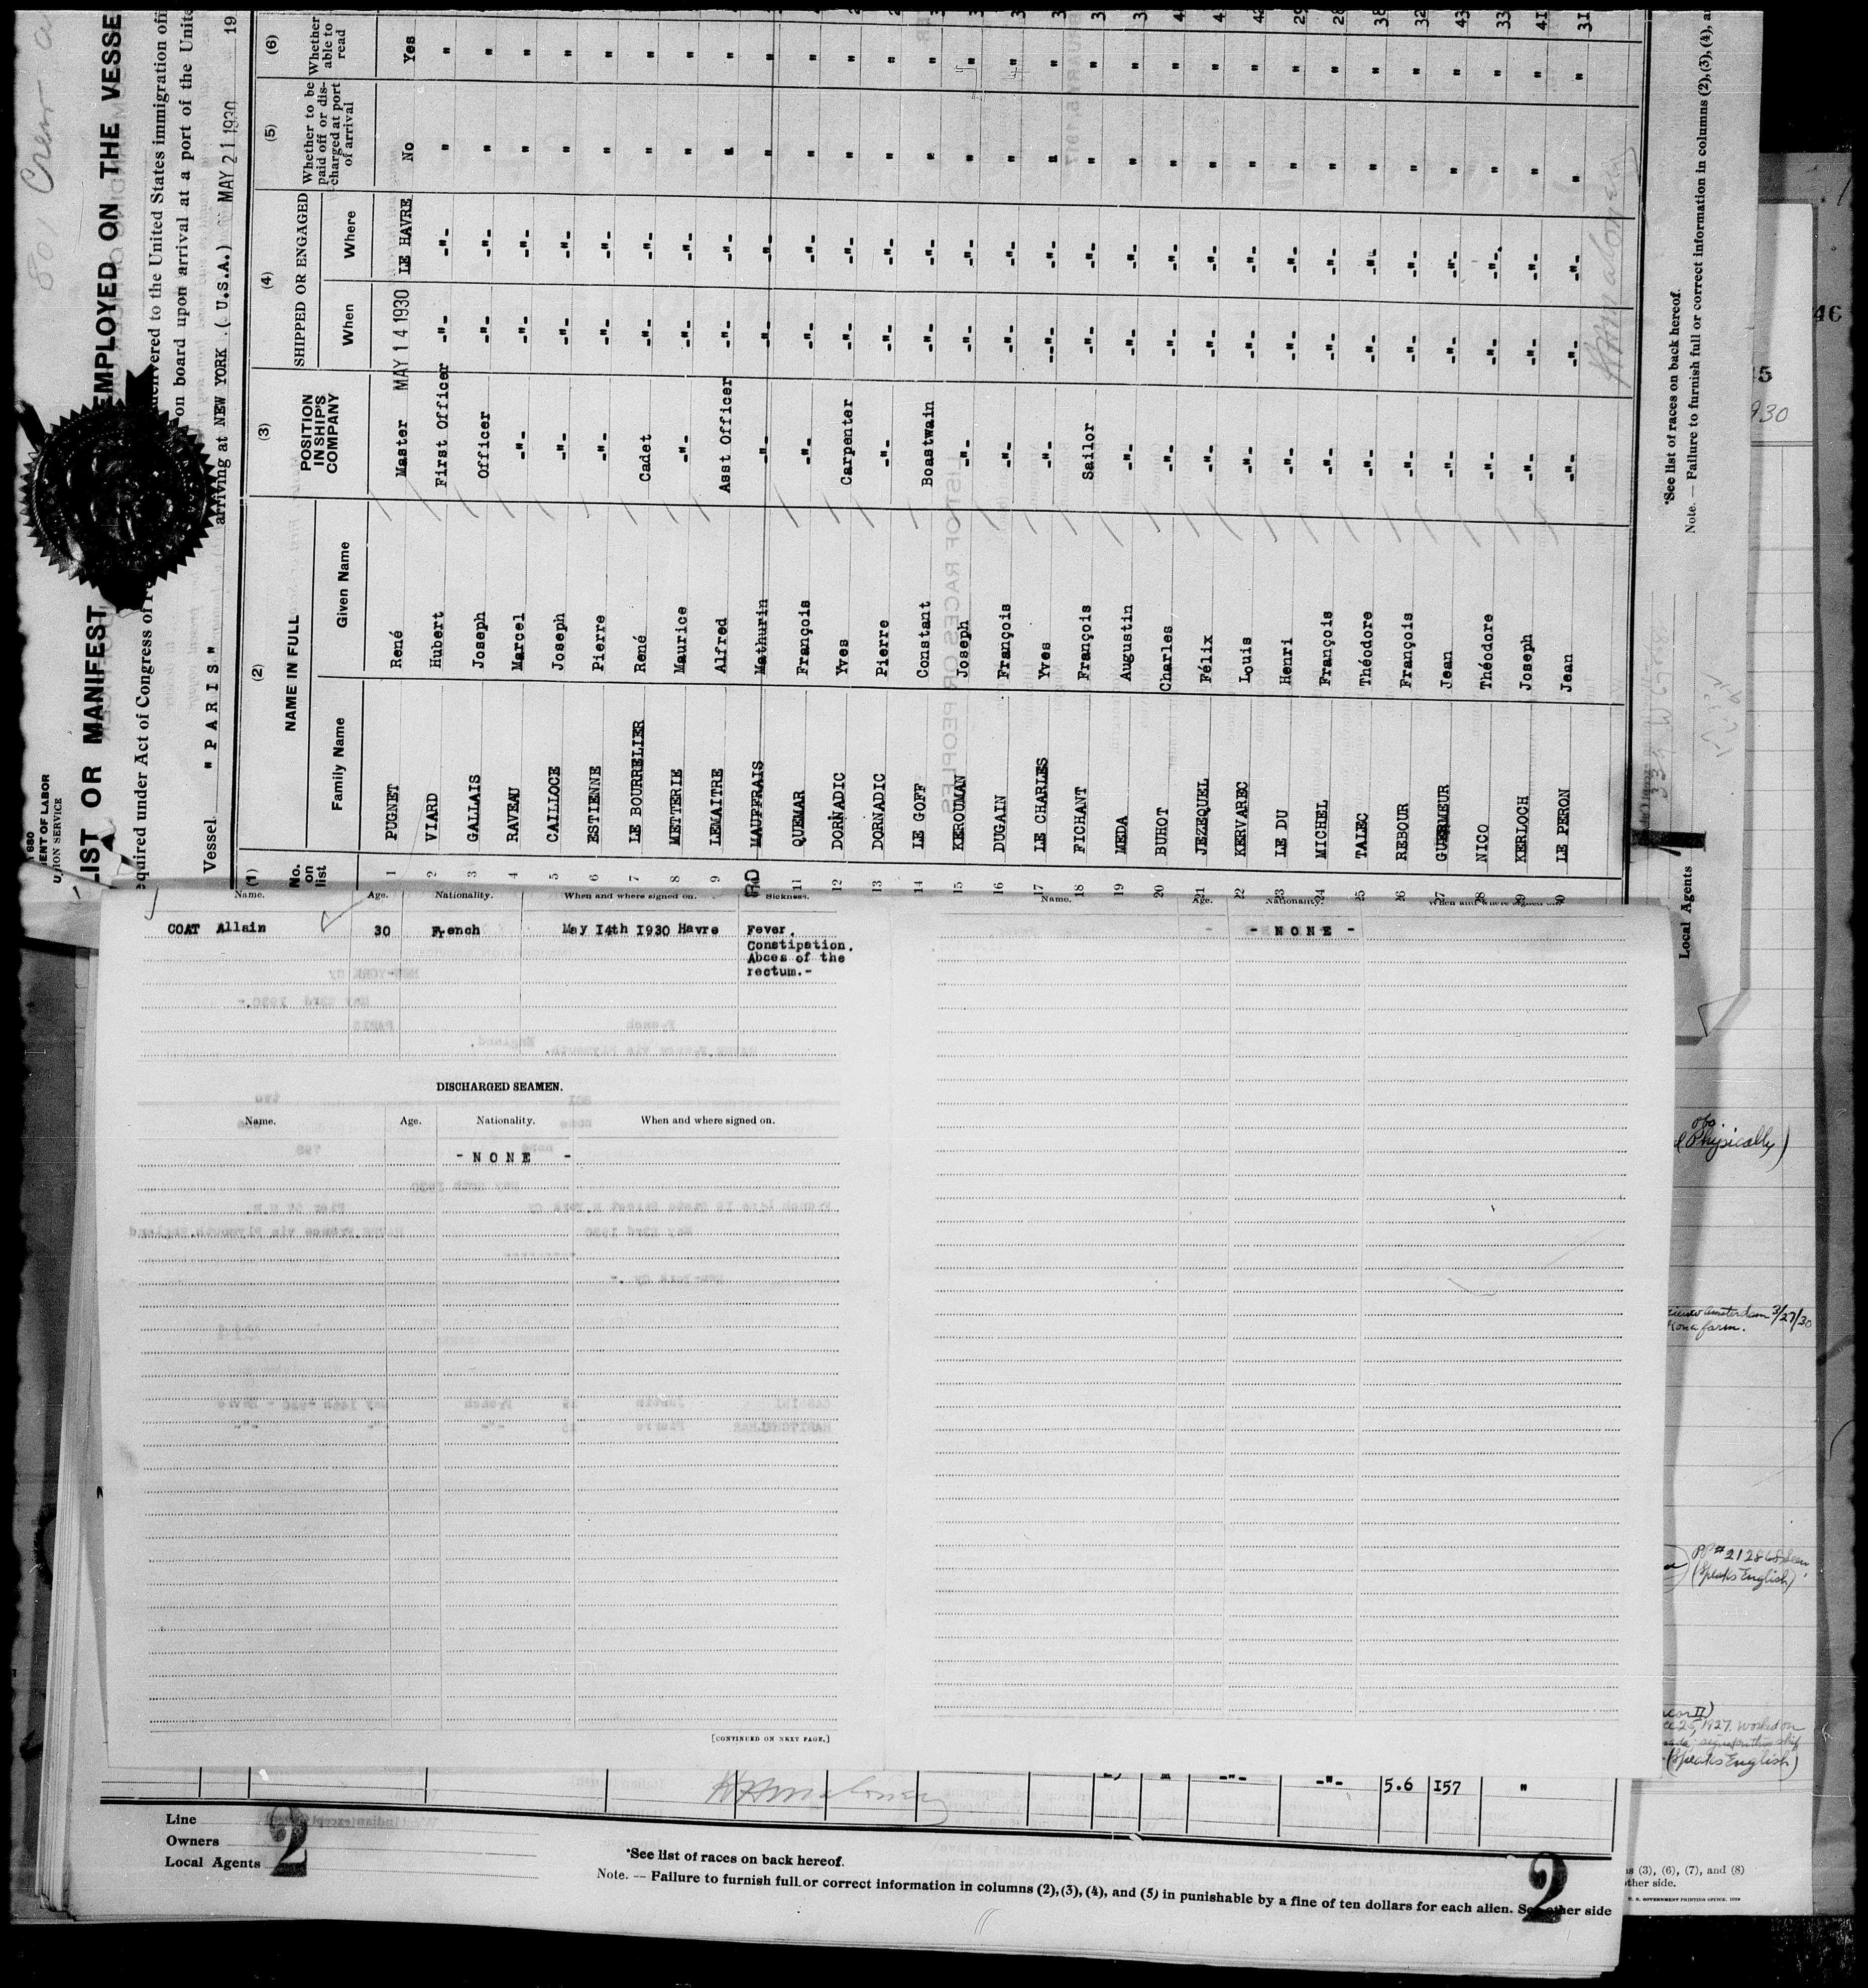 801 Crew
LIST OR MANIFEST
EMPLOYED ON THE VESSE
equired under Act of Congress of
elivered to the United States immigration off
on board upon arrival at a port of the Unite
Vessel "PARIS"
arriving at NEW YORK . ( U.S.A.) MAY 21 1930 19
(1) (2) (3) (4) (5) (6)
No. on list
NAME IN FULL
Family Name Given Name
POSITION IN SHIP'S COMPANY
SHIPPED OR ENGAGED
When Where
Whether to be paid off or dis-charged at port of arrival
Whether able to read
1 PUGNET René Master MAY 14 1930 LE HAVRE No Yes
2 VIARD Hubert First Officer -"- -"- " "
3 GALLAIS Joseph Officer -"- -"- " "
4 RAVEAU Marcel -"- -"- -"- " "
5 CAILLOCE Joseph -"- -"- -"- " "
6 ESTIENNE Pierre -"- -"- -"- " "
7 LE BOURRELIER René Cadet -"- -"- " "
8 METTERIE Maurice -"- -"- -"- " "
9 LEMAITRE Alfred Asst Officer -"- -"- " "
MAUFFRAIS Mathurin -"- -"- -"- " "
11 QUEMAR François -"- -"- -"- " "
12 DORNADIC Yves Carpenter -"- -"- " "
13 DORNADIC Pierre -"- -"- " "
14 LE GOFF Constant Boastwain -"- -"- " "
15 KEROUMAN Joseph -"- -"- -"- " "
16 DUGAIN François -"- -"- -"- " "
17 LE CHARLES Yves -"- -"- -"- " "
18 FICHANT François Sailor -"- -"- " "
19 MEDA Augustin -"- -"- -"- " "
20 BUHOT Charles -"- -"- -"- " "
21 JEZEQUEL Félix -"- -"- -"- " "
22 KERVAREC Louis -"- -"- -"- " "
23 LE DU Henri -"- -"- -"- " "
24 MICHEL François -"- -"- -"- " "
25 TALEC Théodore -"- -"- -"- " "
26 REBOUR François -"- -"- -"- " "
27 GUERMEUR Jean -"- -"- -"- " "
28 NICO Théodore -"- -"- -"- " "
29 KERLOCH Joseph -"- -"- -"- " "
30 LE PERON Jean -"- -"- -"- " "
Local Agents
*See list of races on back hereof.
Note. — Failure to furnish full or correct information in columns (2),(3),(4),
Name. Age. Nationality. When and where signed on. Sickness.
COAT Allain 30 French May I4th I930 Havre Fever.
Constipation.
Abces of the
rectum.-
DISCHARGED SEAMEN.
Name. Age. Nationality. When and where signed on.
- NONE -
[CONTINUED ON NEXT PAGE.]
Name. Age. Nationality. When and where signed on
- NONE -
-"- -"- 5.6 I57 "
Line
Owners
Local Agents
2
*See list of races on back hereof.
Note. — Failure to furnish full or correct information in columns (2),(3), (4), and (5) in punishable by a fine of ten dollars for each alien. See other side
2
46
930
Physically)
Amsterdam 3/27/30
farm.
(Speaks English)
25, 1927. Worked on
(Speaks English)
(3), (6), (7), and (8)
other side.
U. S. GOVERNMENT PRINTING OFFICE. 1929